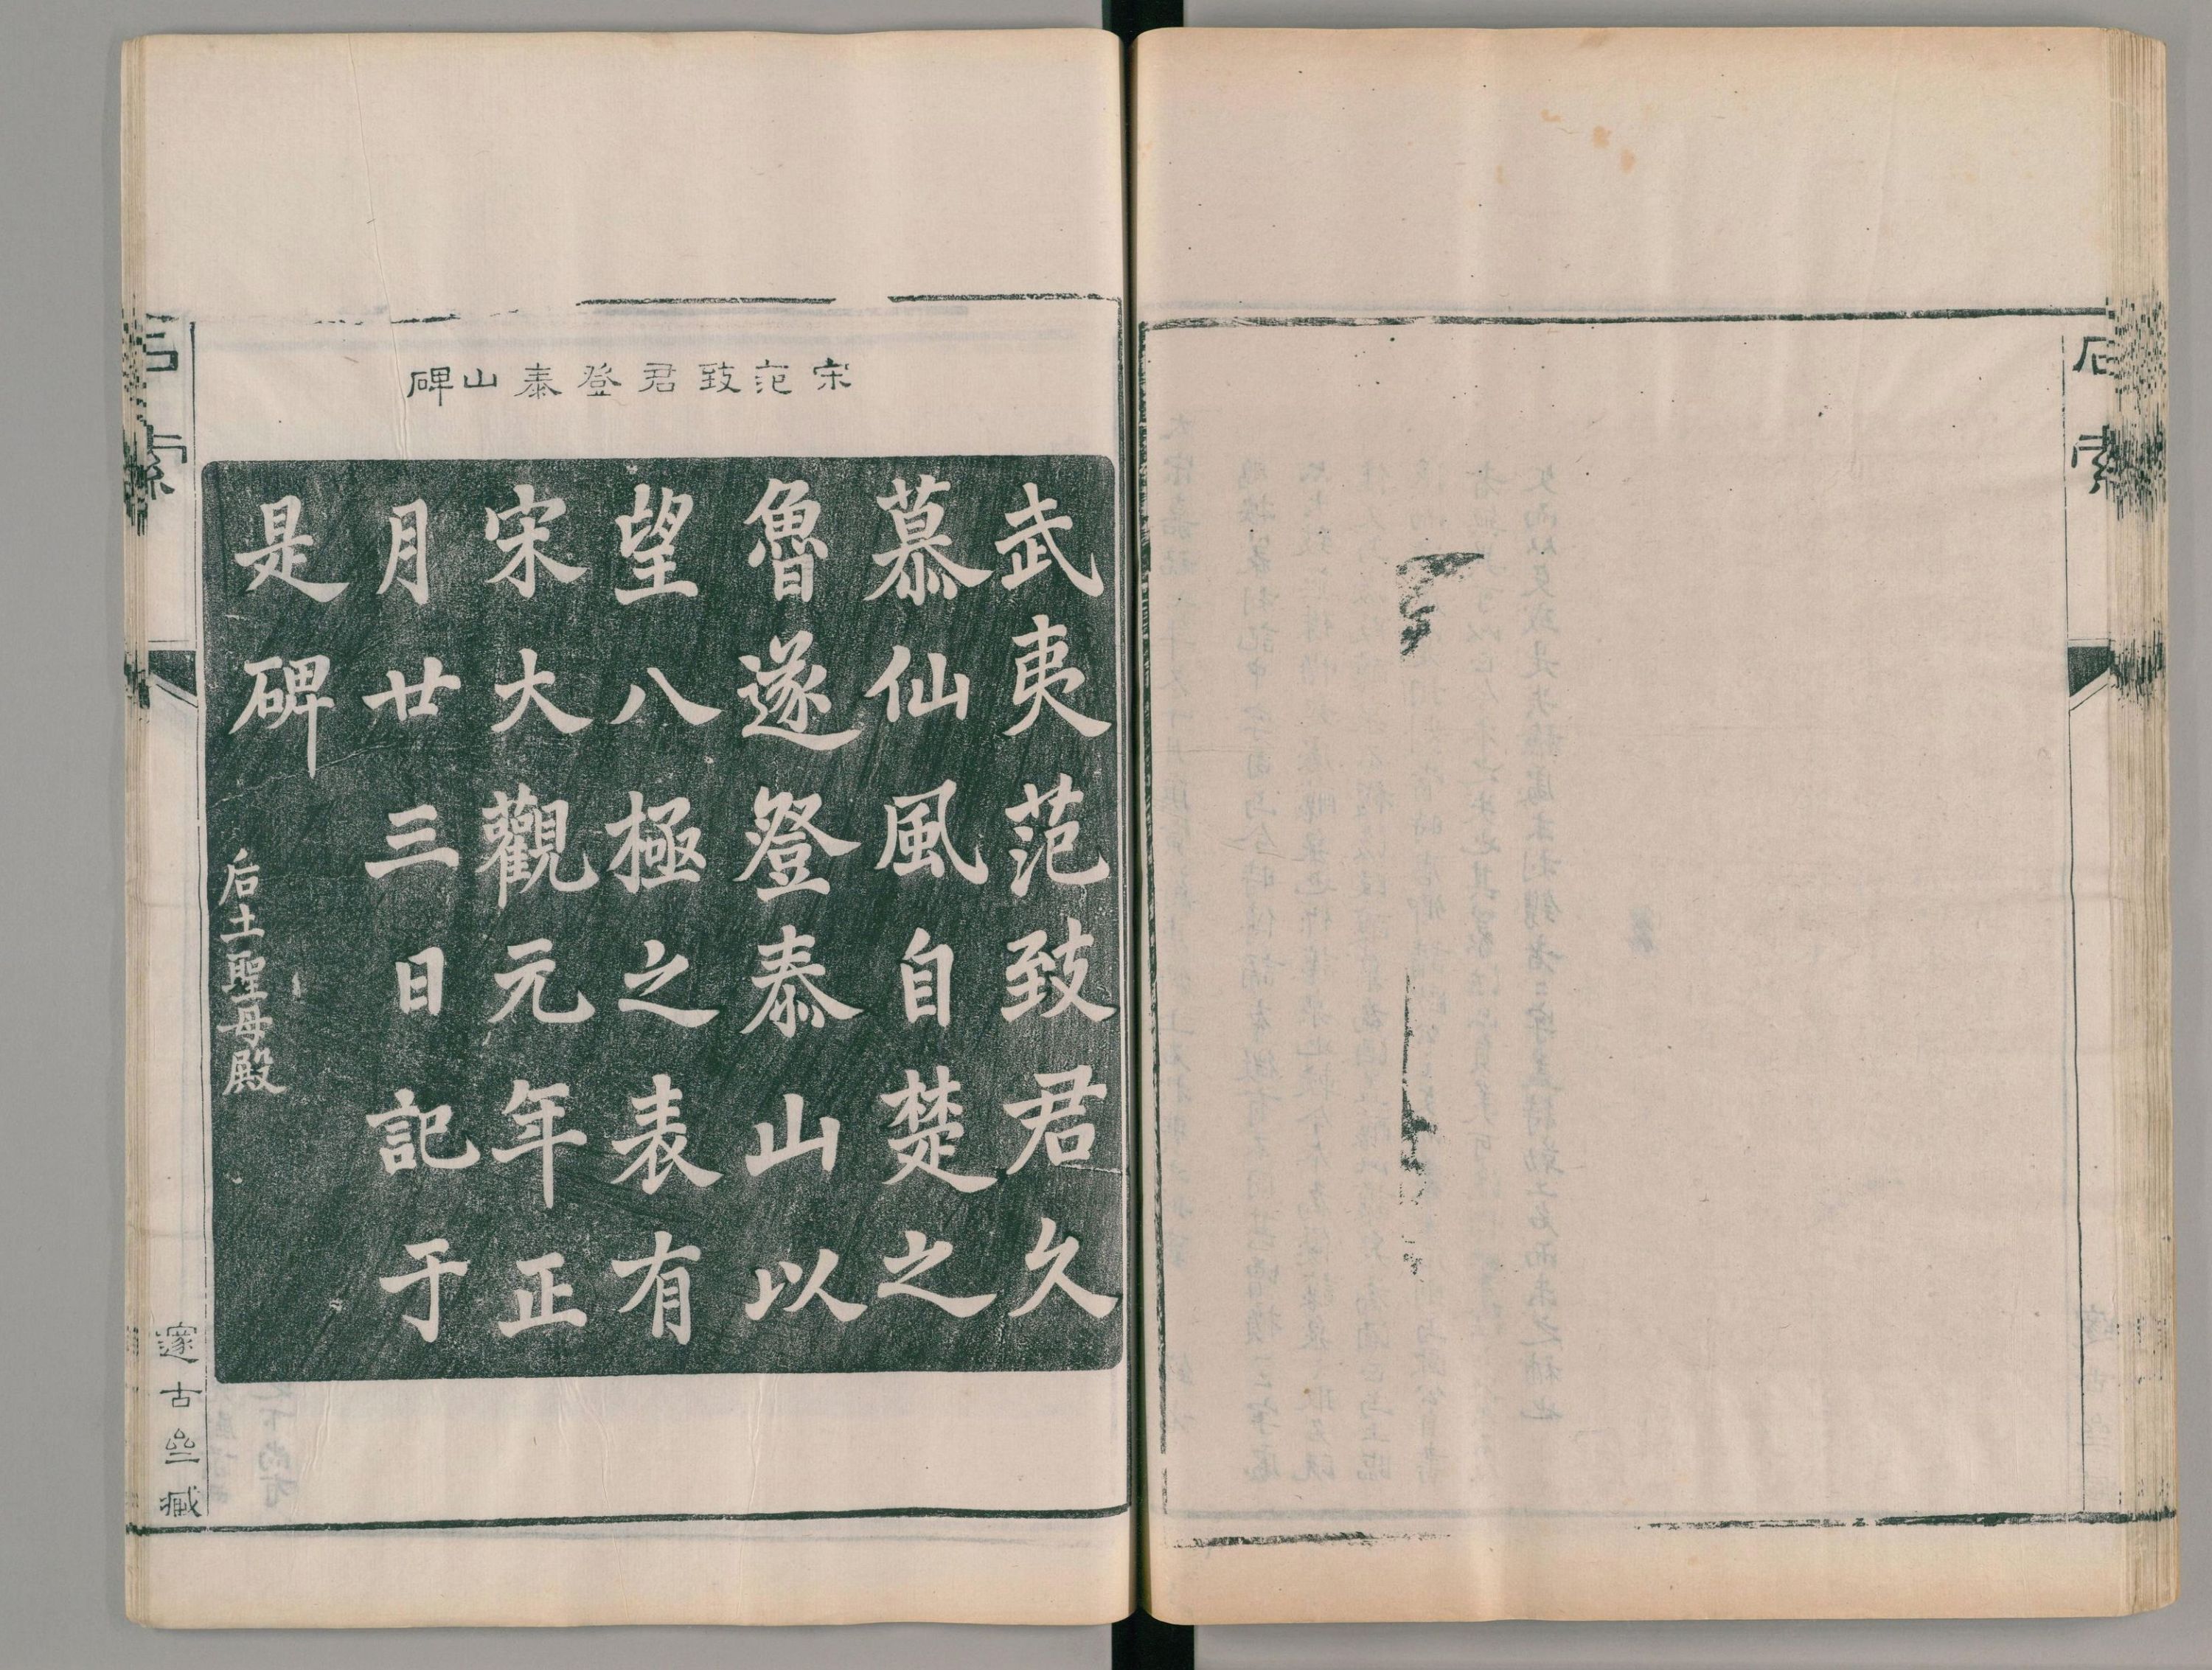 石索
宋范致君登泰山碑
武夷范致君久
慕仙風自楚之
魯遂登泰山以
望八極之表有
宋大觀元年正
月廿三日記于
是碑
后土聖母殿
石索
邃古亝臧